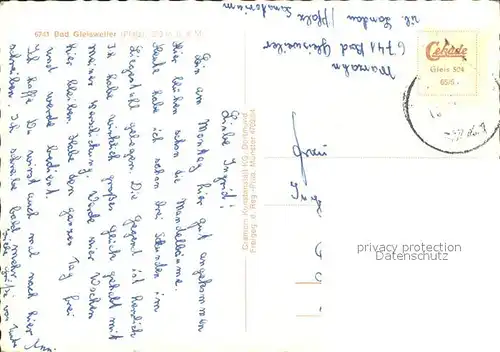 6741 Bad Gleisweiler (Pfalz)
Marzahn
6741 Bad Gleisweiler
üb. Landau / Pfalz Sanatorium
Cekade
Gleis 504
Liebe Ingrid!
Bin am Montag hier gut angekommen
Hier blühen schon die Mandelbäume.
Heute habe ich schon drei Stunden im
Liegestuhl gelegen. Die Gegend ist herrlich
Ich habe wirklich großes Glück gehabt mit
meiner Verschickung. Werde vier Wochen
hier bleiben. Habe den ganzen Tag frei
und werde bedient.
Ich hoffe Du wirst auch mal nach hier
schreiben. Ich schreibe bald mehr.
Viele Grüße von
Cramers Kunstanstalt KG. Dortmund
privacy protection
Datenschutz